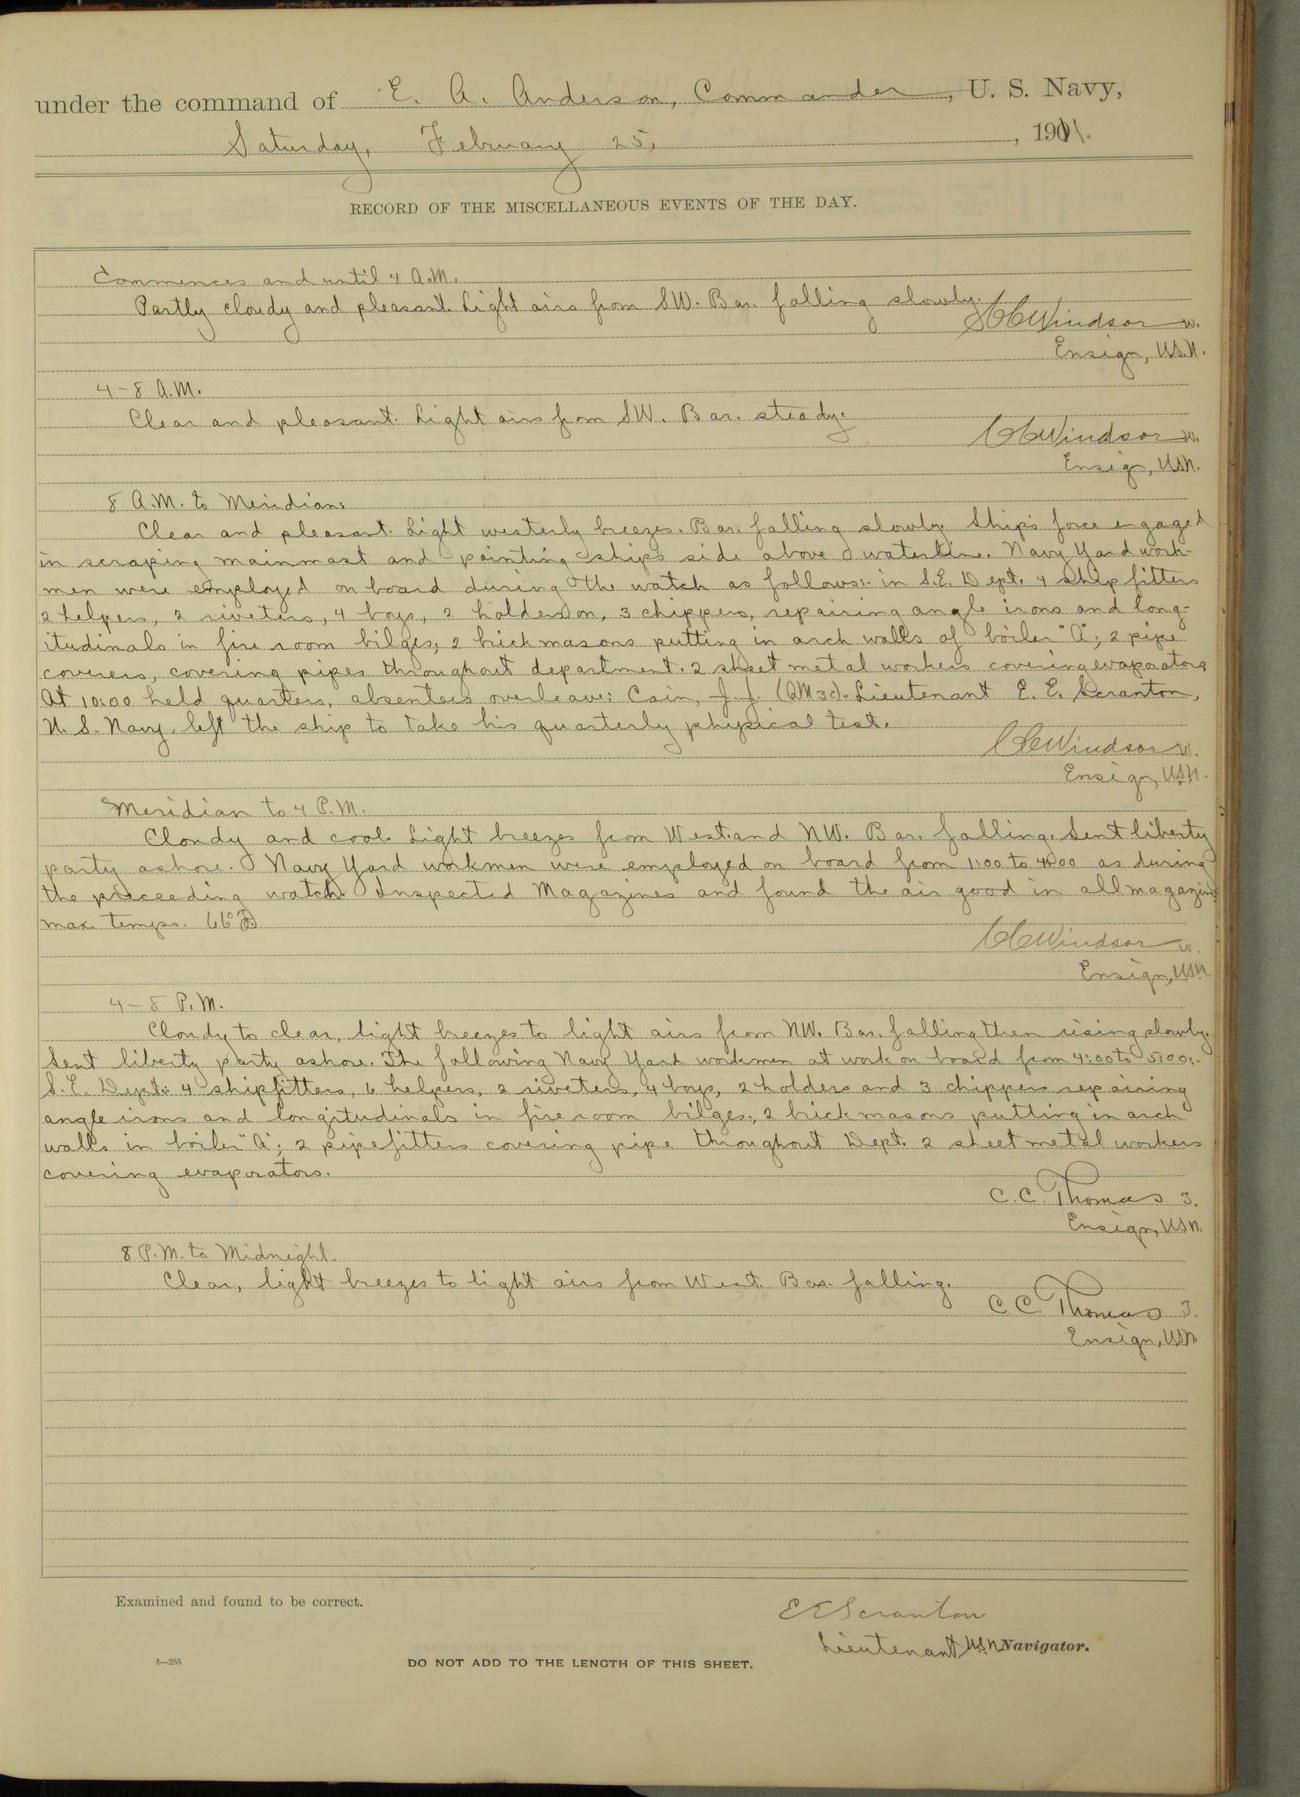 under the command of E. A. Anderson, Commander, U. S. Navy,
Saturday, February 25, 1911.
RECORD OF THE MISCELLANEOUS EVENTS OF THE DAY.
Commences and until 4 A.M.
Partly cloudy and pleasant. Light airs from SW. Bar. falling slowly.
Windsor
Ensign, U.S.N.
4-8 A.M.
Clear and pleasant. Light airs from SW. Bar. steady.
Windsor
Ensign, USN.
8 A.M. to Meridian:
Clear and pleasant. Light westerly breezes. Bar. falling slowly. Ship's force engaged
in scraping mainmast and painting ship's side above waterline. Navy Yard work-
men were employed on board during the watch as follows:- in S.E. Dept. 4 ship fitters
2 helpers, 2 riveters, 4 boys, 2 holders on, 3 chippers, repairing angle irons and long-
itudinals in fire room bilges; 2 brick masons putting in arch walls of boiler "A"; 2 pipe
coverers, covering pipes throughout department. 2 sheet metal workers covering evaporators
At 10:00 held quarters, absentees overleave: Cain, J.J. (QM3c). Lieutenant E. E. Scranton,
U. S. Navy, left the ship to take his quarterly physical test.
Windsor
Ensign, USN.
Meridian to 4 P.M.
Cloudy and cool. Light breezes from West and NW. Bar. falling. Sent liberty
party ashore. Navy Yard workmen were employed on board from 1:00 to 4:00 as during
the preceeding watch. Inspected Magazines and found the air good in all magazines
max. temps. 66°F.
Windsor
Ensign, USN.
4-8 P.M.
Cloudy to clear, light breezes to light airs from NW. Bar. falling then rising slowly.
Sent liberty party ashore. The following Navy Yard workmen at work on board from 4:00 to 5:00:-
S.E. Dept: 4 shipfitters, 6 helpers, 2 riveters, 4 boys, 2 holders and 3 chippers repairing
angle irons and longitudinals in fireroom bilges; 2 brick masons putting in arch
walls in boiler "A"; 2 pipefitters covering pipe throughout Dept. 2 sheet metal workers
covering evaporators.
C. C. Thomas
Ensign, USN.
8 P.M. to Midnight.
Clear, light breezes to light airs from West. Bar. falling.
C. C. Thomas
Ensign, USN
Examined and found to be correct.
E E Scranton
Lieutenant U.S.N. Navigator.
4—285
DO NOT ADD TO THE LENGTH OF THIS SHEET.